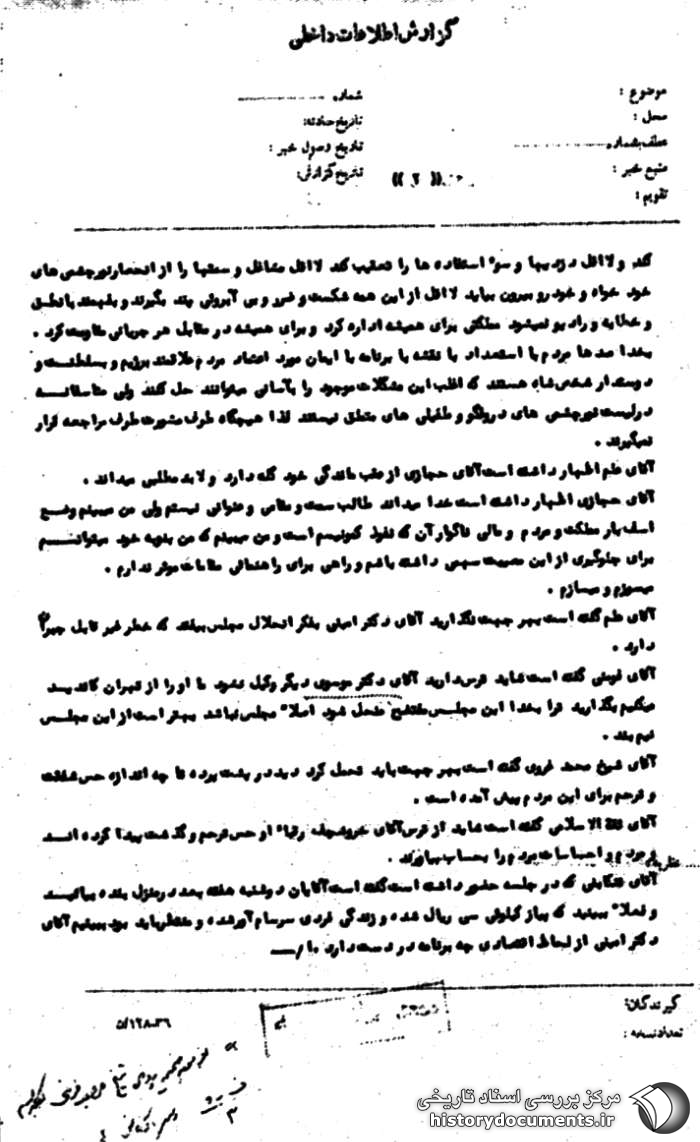 گزارش اطلاعات داخلی
موضوع :
شماره
محل :
تاریخ حادثه:
عطف بشماره
تاریخ وصول خبر :
منبع خبر :
تاریخ گزارش:
(( ۲ ))
تقویم :
کند و لااقل دزدیها و سوء استفاده ها را تعقیب کند لااقل مشاغل و سمتها را از انحصار نورچشمی های
خود خواه و خودرو بیرون بیاید لااقل از این همه شکست و ضرر و بی آبروئی پند بگیرند و بفهمند با نطق
و خطابه و رادیو نمیشود مملکتی برای همیشه اداره کرد و برای همیشه در مقابل هر جریانی مقاومت کرد .
بخدا صدها مردم با استعداد با نقشه با برنامه با ایمان مورد اعتماد مردم علاقمند برژیم و بسلطنت و
دوستدار شخص شاه هستند که اغلب این مشکلات موجود را بآسانی میتوانند حل کنند ولی متاسفانه
در لیست نورچشمی های دروغگو و طفیلی های متملق نیستند لذا هیچگاه طرف مشورت طرف مراجعه قرار
نمیگیرند .
آقای علم اظهار داشته است آقای حجازی از عقب ماندگی خود گله دارد و لابد مطلبی میداند .
آقای حجازی اظهار داشته است خدا میداند طالب سمت و مقامی و عنوانی نیستم ولی من میبینم وضع
اسف بار مملکت و مردم و مالی ناگوار آن که نفوذ کمونیسم است و من میبینم که من بنوبه خود میتوانم
برای جلوگیری از این مصیبت سهمی داشته باشم و راهی برای راهنمائی مقامات موثر ندارم .
میسوزم و میسازم .
آقای علم گفته است بهر جهت نگذارید آقای دکتر امینی بفکر انحلال مجلس بیفتد که خطر غیر قابل جبران
دارد .
آقای گفته است شاید ترس دارید آقای دکتر موسوی دیگر وکیل نشود ما او را از تهران کاندید
میکنیم بگذارید ترا بخدا این مجلس مفتضح منحل شود اصلا" مجلس نباشد بهتر است از این مجلس
نیم بند .
آقای شیخ محمد غروی گفته است بهر جهت باید تحمل کرد دید در پشت پرده تا چه اندازه حس شفقت
و ترحم برای این مردم پیش آمده است .
آقای الاسلامی گفته است شاید از ترس آقای خروشچف رفقاء او حس ترحم و گذشت پیدا کرده اند
و مردم و احساسات مردم را بحساب بیاورند .
آقای تنکابنی که در جلسه حضور داشته است گفته است آقایان دوشنبه هفته بعد در منزل بنده بیائید
و فعلا" ببینید که پیاز کیلوئی سی ریال شده و زندگی فردی سرسام آور شده و منتظر باید بود ببینیم آقای
دکتر امینی از لحاظ اقتصادی چه برنامه در دست دارد .
گیرندگان:
تعداد نسخه :
۵/۱۲۸۰۳۶
مرکز بررسی اسناد تاریخی
historydocuments.ir